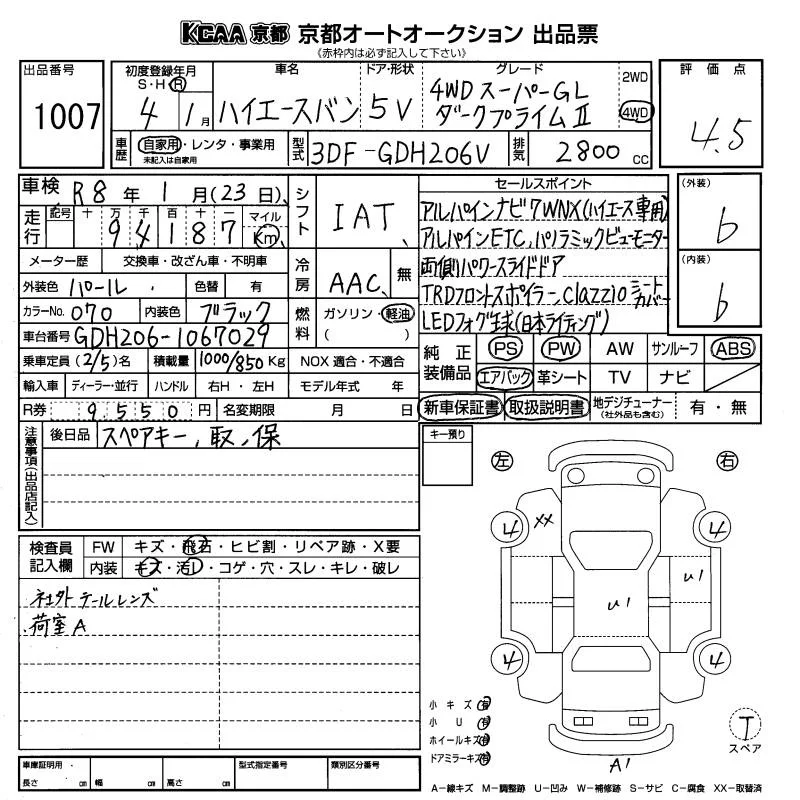 KCAA 京都 京都オートオークション 出品票
《赤枠内は必ず記入して下さい》
出品番号
1007
初度登録年月
S・H・R
4 1月
車名
ハイエースバン
ドア・形状
5V
グレード
4WD スーパーGL
ダークプライムⅡ
2WD
4WD
評価点
4.5
車歴
自家用・レンタ・事業用
未記入は自家用
型式
3DF-GDH206V
排気
2800 CC
車検
R8 年 1 月(23 日)
走行
記号 十 万 千 百 十 一
9 4 1 8 7
マイル
Km
メーター歴 交換車・改ざん車・不明車
外装色 パール 色替 有
カラーNo. 070 内装色 ブラック
車台番号 GDH206-1067029
乗車定員 (2/5)名 積載量 1000/850 Kg NOX 適合・不適合
輸入車 ディーラー・並行 ハンドル 右H・左H モデル年式 年
R券 9550 円 名変期限 月 日
シフト
IAT
冷房
AAC 無
燃料
ガソリン・軽油
( )
セールスポイント
アルパインナビ7WNX(ハイエース専用)
アルパインETC、パノラミックビューモニター
両側パワースライドドア
TRDフロントスポイラー、Clazzioシートカバー
LEDフォグ球(日本ライティング)
(外装)
b
(内装)
b
純正装備品
PS PW AW サンルーフ ABS
エアバック 革シート TV ナビ
新車保証書 取扱説明書 地デジチューナー(社外品も含む) 有・無
注意事項(出品店記入)
後日品 スペアキー、取、保
キー預り
左
右
検査員記入欄
FW キズ・飛石・ヒビ割・リペア跡・X要
内装 キズ・汚レ・コゲ・穴・スレ・キレ・破レ
社外テールレンズ
荷室A
4 XX 4
U1
U1
4 4
A1
小キズ 有
小U 有
ホイールキズ 有
ドアミラーキズ 有
T
スペア
車庫証明用・
長さ cm 幅 cm 高さ cm
型式指定番号
類別区分番号
A-線キズ M-調整跡 U-凹み W-補修跡 S-サビ C-腐食 XX-取替済